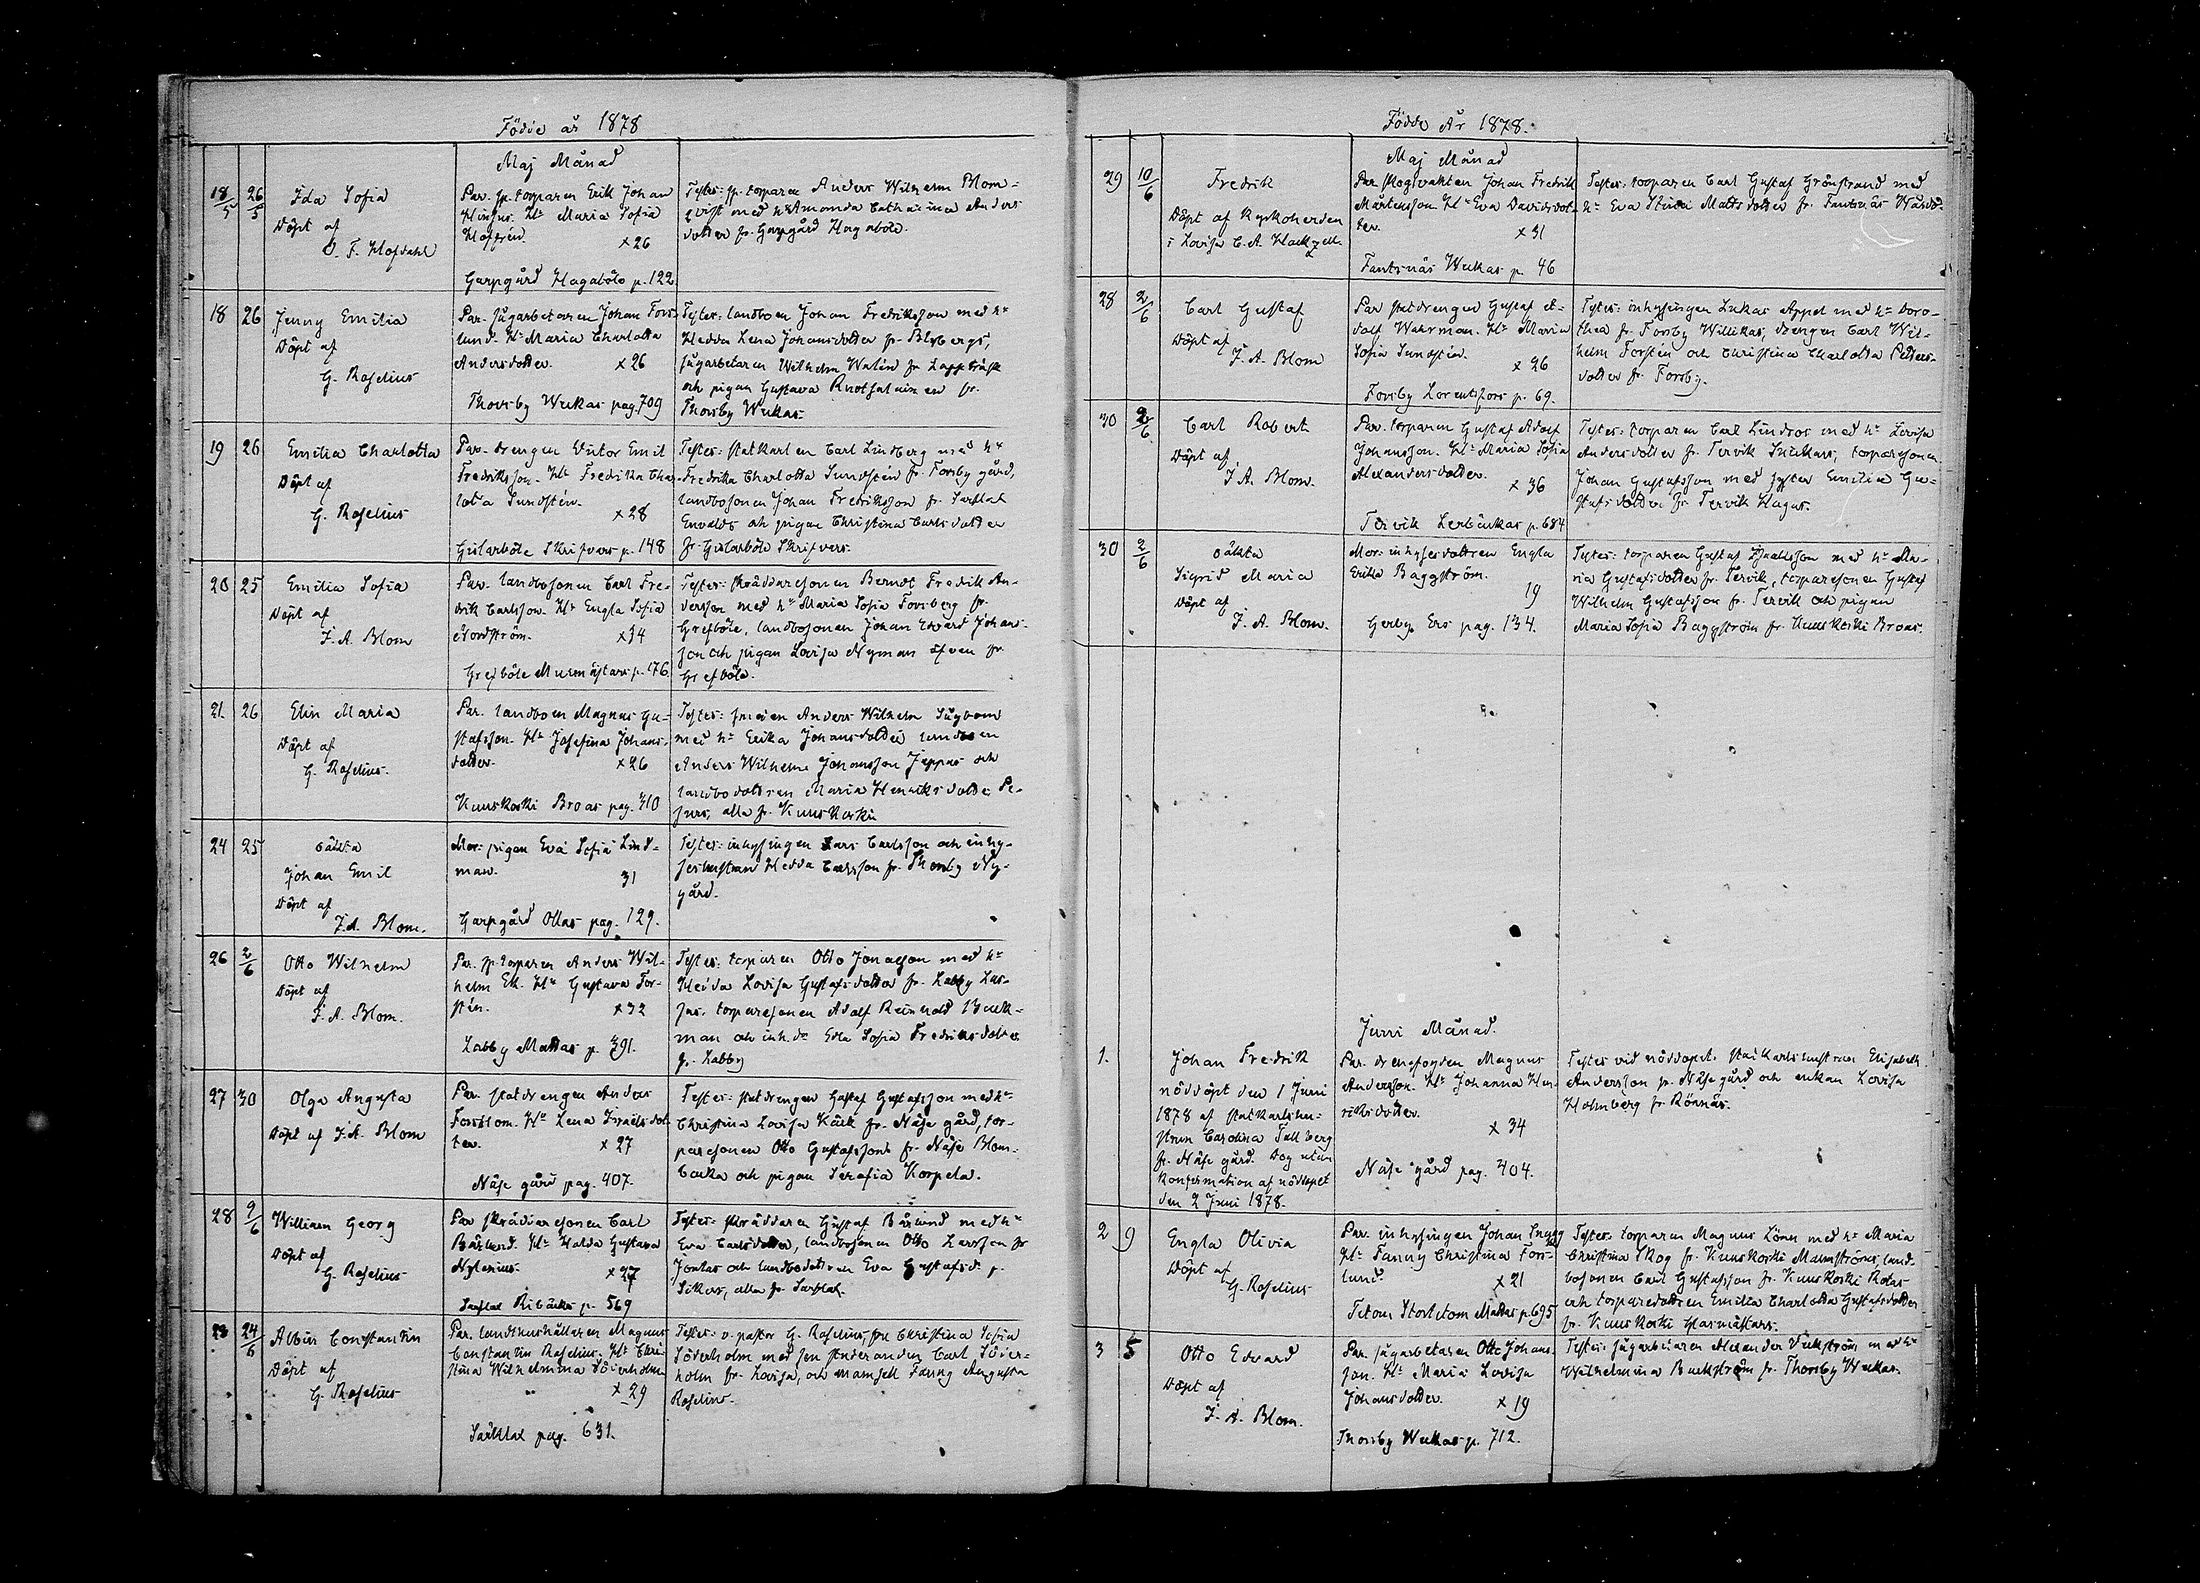 Födde år 1878
Maj Månad
18/5 26/5
Ida Sofia
Döpt af
O. F. Hofdahl
Par. sp. torparen Erik Johan
Hr Maria Sofia
x 26
Garpgård Hagaböle p. 122
Testes: sp. torparen Anders Wilhelm Blom-
qvist med hu Amanda Catharina Anders
dotter fr. Garpgård Hagaböle.
18 26
Jenny Emilia
Döpt af
G. Roselius
Par. sågarbetaren Johan Fors-
lund. Hu Maria Charlotta
Andersdotter. x 26
Thorsby Weckas pag. 709
Testes: landboen Johan Fredriksson med hu
Hedda Lena Johansdotter fr.
sågarbetaren Wilhelm Walén fr. Lappträsk
och pigan Gustava fr.
Thorsby Weckas.
19 26
Emilia Charlotta
Döpt af
G. Roselius
Par. drengen Victor Emil
Fredriksson. Hu Fredrika Char-
lotta Sundstén.
x 28
Gislarböle Skrifvars p. 148
Testes: statkarlen Carl Lindberg med hu
Fredrika Charlotta Sundstén fr. Forsby gård,
landbosonen Johan Fredriksson fr. Sarflax
Envalds och pigan Christina Carlsdotter
fr. Gislarböle Skrifvars.
20 25
Emilia Sofia
Döpt af
J. A. Blom
Par. landbosonen Carl Fre-
drik Carlsson. Hu Engla Sofia
Nordström. x 34
Grefböle Murmästars p. 176
Testes: skräddaresonen Berndt Fredrik An-
dersson med hu Maria Sofia Forsberg fr.
Grefböle, landbosonen Johan Edvard Johans-
son och pigan Lovisa Nyman äfven fr.
Grefböle.
21 26
Elin Maria
Döpt af
G. Roselius.
Par. landboen Magnus Gu-
stafsson. Hu Josefina Johans-
dotter. x 26
Kuuskoski Broas pag. 310
Testes: smeden Anders Wilhelm
med hu Erika Johansdotter
Anders Wilhelm Johansson Jeppas och
landbodottren Maria Henriksdotter Pe-
jurs, alla fr. Kuuskoski
24 25
oäkta
Johan Emil
Döpt af
J. A. Blom.
Mor: pigan Eva Sofia Lind-
man. 31
Garpgård Ollas pag. 129.
Testes: inhysingen Lars Carlsson och inhy-
seshustrun Hedda Carlsson fr. Thorsby Ny-
gård.
26 2/6
Otto Wilhelm
Döpt af
J. A. Blom.
Par. sp. torparen Anders Wil-
helm Ek. Hu Gustava For-
stén. x 32
Labby Mattas p. 391.
Testes: torparen Otto Jonasson med hu
Hedda Lovisa Gustafsdotter fr. Labby Las-
sas. torparesonen Adolf Reinhold Back-
man och inh. dr Edla Sofia Fredriksdotter
fr. Labby
27 30
Olga Augusta
Döpt af J. A. Blom
Par. statdrengen Anders
Forsblom. Hu Lena Israelsdot-
ter. x 27
Näse gård pag. 407.
Testes: statdrengen Gustaf Gustafsson med hu
Christina Lovisa Käck fr. Näse gård, tor-
paresonen Otto Gustafsson fr. Näse Blom-
backa och pigan Serafia Korpela.
28 9/6
William Georg
Döpt af
G. Roselius
Par skräddaresonen Carl
Bärlund. Hu Hulda Gustava
Nylenius. x 27
Sarflax Ribäcks p. 569
Testes: skräddaren Gustaf Bärlund med hu
Eva Carlsdotter, landbosonen Otto Larsson fr
Jontas och landbodottren Eva Gustafsd. fr
Sikars, alla fr. Sarflax.
24/6
Albin Constantin
Döpt af
G. Roselius
Par. landthushållaren Magnus
Constantin Roselius. Hu Chri-
stina Wilhelmina Söderholm
x 29
Sarflax pag. 631.
Testes: v. pastor G. Roselius, fru Christina Sofia
Söderholm med son studeranden Carl Söder-
holm fr. Lovisa, och mamsell Fanny Augusta
Roselius.
Födde År 1878.
Maj Månad
29 10/6
Fredrik
Döpt af Kyrkoherden
i Lovisa C. A. Hackzell.
Par. skogsvakten Johan Fredrik
Mårtensson Hu Eva Davidsdot-
ter. x 31
Fantsnäs Weckas p. 46
Testes: torparen Carl Gustaf Grönstrand med
hu Eva Stina Mattsdotter fr. Fantsnäs
28 2/6
Carl Gustaf
Döpt af
J. A. Blom
Par statdrengen Gustaf A-
dolf Wahrman. Hu Maria
Sofia Sundstén. x 26
Forsby Lorentsfors p. 69.
Testes: inhysingen Lukas Appel med hu Doro-
thea fr. Forsby Willikas, drengen Carl Wil-
helm Forstén och Christina Charlotta Petters-
dotter fr. Forsby.
30 2/6
Carl Robert
Döpt af
J. A. Blom.
Par. torparen Gustaf Adolf
Johansson. Hu Maria Sofia
Alexandersdotter. x 36
Tervik Lerbäckas p. 684
Testes: torparen Carl Lindroos med hu Lovisa
Andersdotter fr. Tervik torparesonen
Johan Gustafsson med syster Emilia Gu-
stafsdotter fr. Tervik Hagas.
30 2/6
oäkta
Sigrid Maria
Döpt af
J. A. Blom.
Mor: inhysesdottren Engla
Erika Baggström.
19
Gerby Ers pag. 134.
Testes: torparen Gustaf med hu Ma-
ria Gustafsdotter fr. Tervik, torparesonen Gustaf
Wilhelm Gustafsson fr. Tervik och pigan
Maria Sofia Baggström fr. Kuuskoski Broas.
Juni Månad.
1.
Johan Fredrik
nöddöpt den 1 Juni
1878 af statkarlshu-
strun Carolina Tallberg
fr. Näse gård. Dog utan
konfirmation af nöddopet
den 2 Juni 1878.
Par. drengfogden Magnus
Andersson. Hu Johanna Hen-
riksdotter.
x 34
Näse gård pag. 404.
Testes vid nöddopet. statkarlshustrun Elisabeth
Andersson fr. Näse gård och enkan Lovisa
Holmberg fr. Rönnäs.
2 9
Engla Olivia
Döpt af
G. Roselius
Par. inhysingen Johan
Hu Fanny Christina Fors-
lund. x 21
Tetom Storktom Mattas p. 695
Testes: torparen Magnus Lönn med hu Maria
Christina Skog fr. Kuuskoski Malmströms, land-
bosonen Carl Gustafsson fr. Kuuskoski
och torparedottren Emilia Charlotta Gustafsdotter
fr. Kuuskoski Glasmästars.
3 5
Otto Edvard
Döpt af
J. A. Blom.
Par. sågarbetaren Otto Johans-
son. Hu Maria Lovisa
Johansdotter. x 19
Thorsby Weckas p. 712.
Testes: sågarbetaren Alexander Vickström med hu
Wilhelmina Backström fr. Thorsby Weckas.